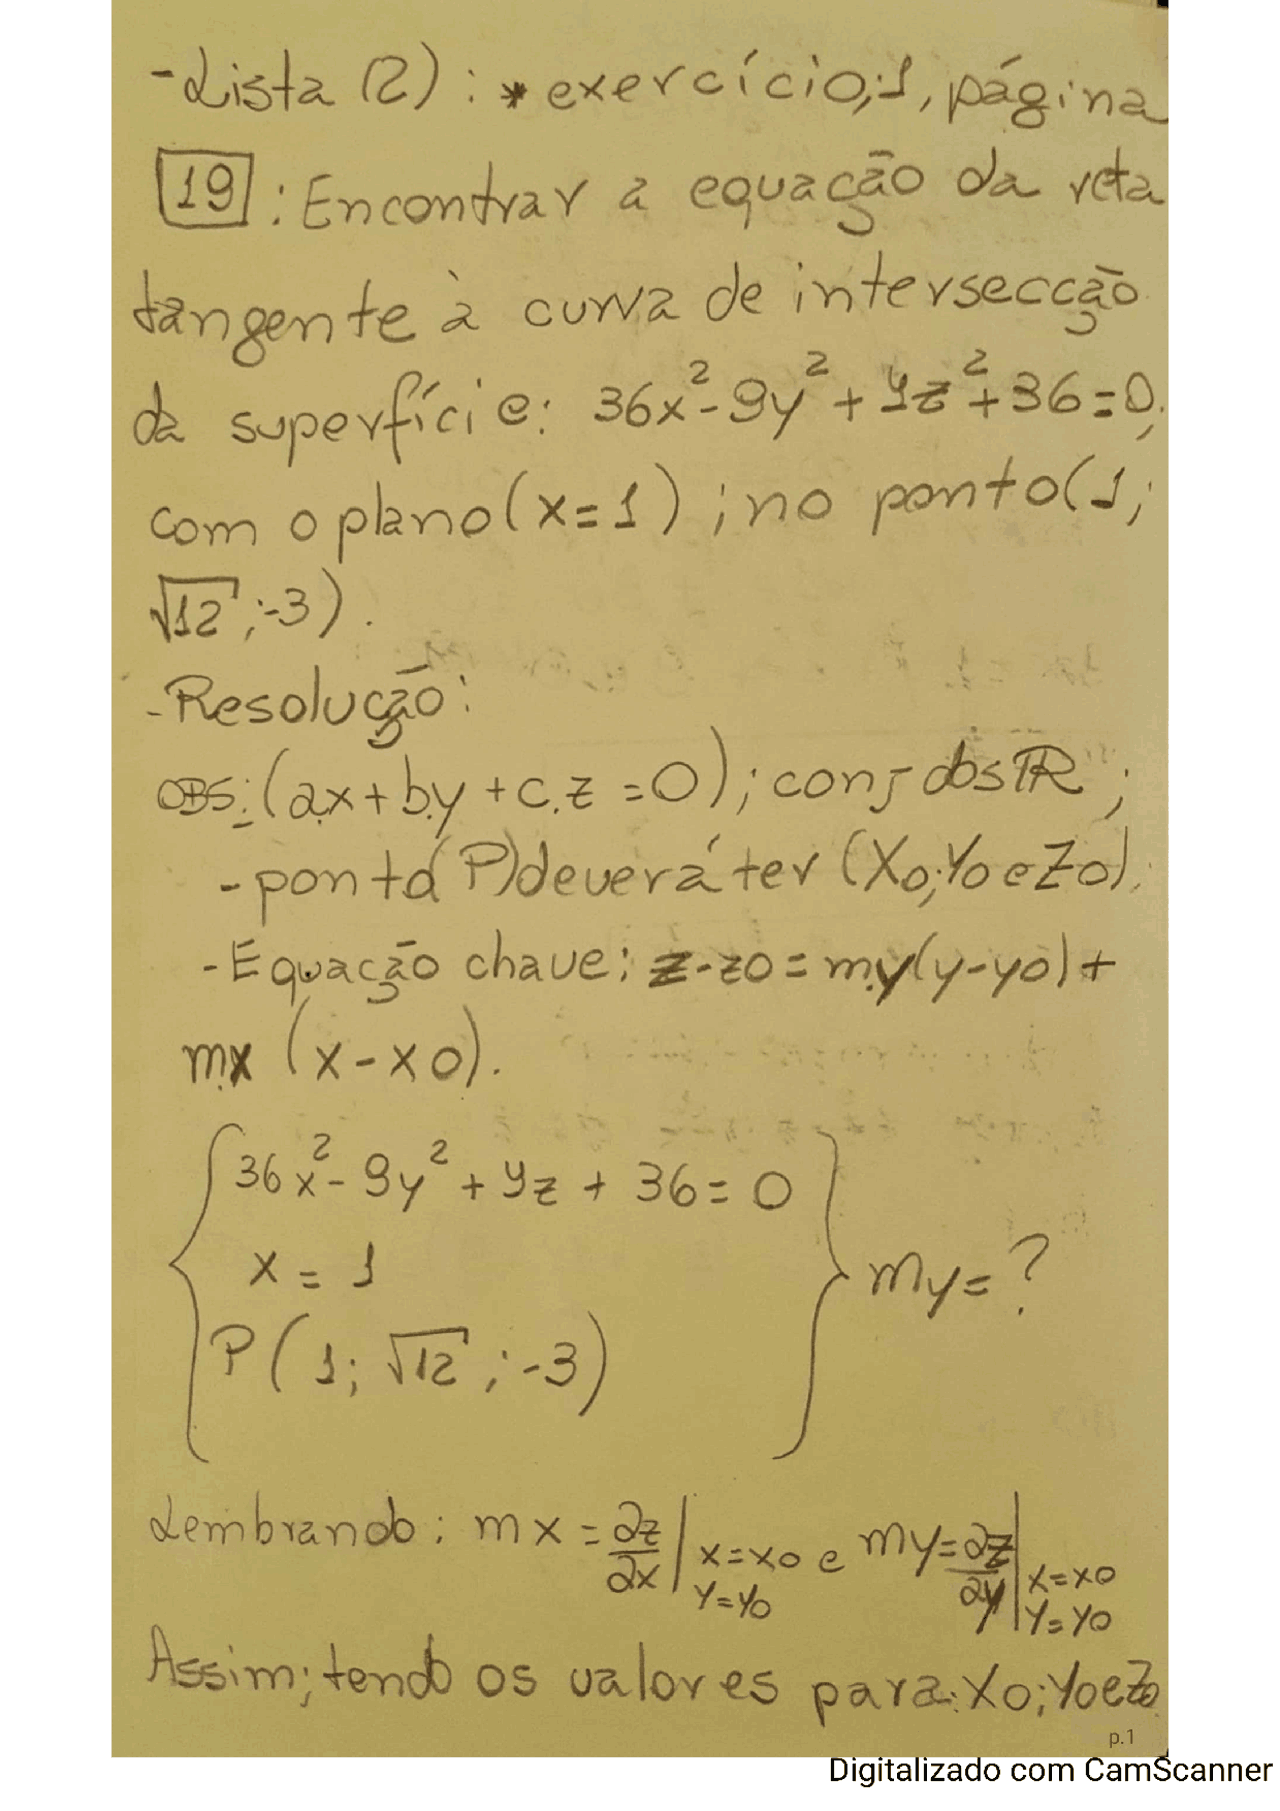 -Lista (2): * exercício;1, página
19 : Encontrar a equação da reta
tangente à curva de intersecção
da superfície: 36x²-9y²+4z²+36=0,
com o plano(x=1); no ponto(1;
√12;-3).
-Resolução:
OBS:(a.x+b.y+c.z=0); conj dos ℝ;
-ponto(P)deverá ter (Xo;Yo e Zo).
-Equação chave: z-zo=m.y(y-yo)+
m.x (x-xo).
36x²-9y²+4z+36=0
x=1
my=?
P(1;√12;-3)
Lembrando: mx=∂z/∂x|x=xo y=yo e my=∂z/∂y|x=xo y=yo
Assim; tendo os valores para: Xo;Yo e Zo
p.1
Digitalizado com CamScanner